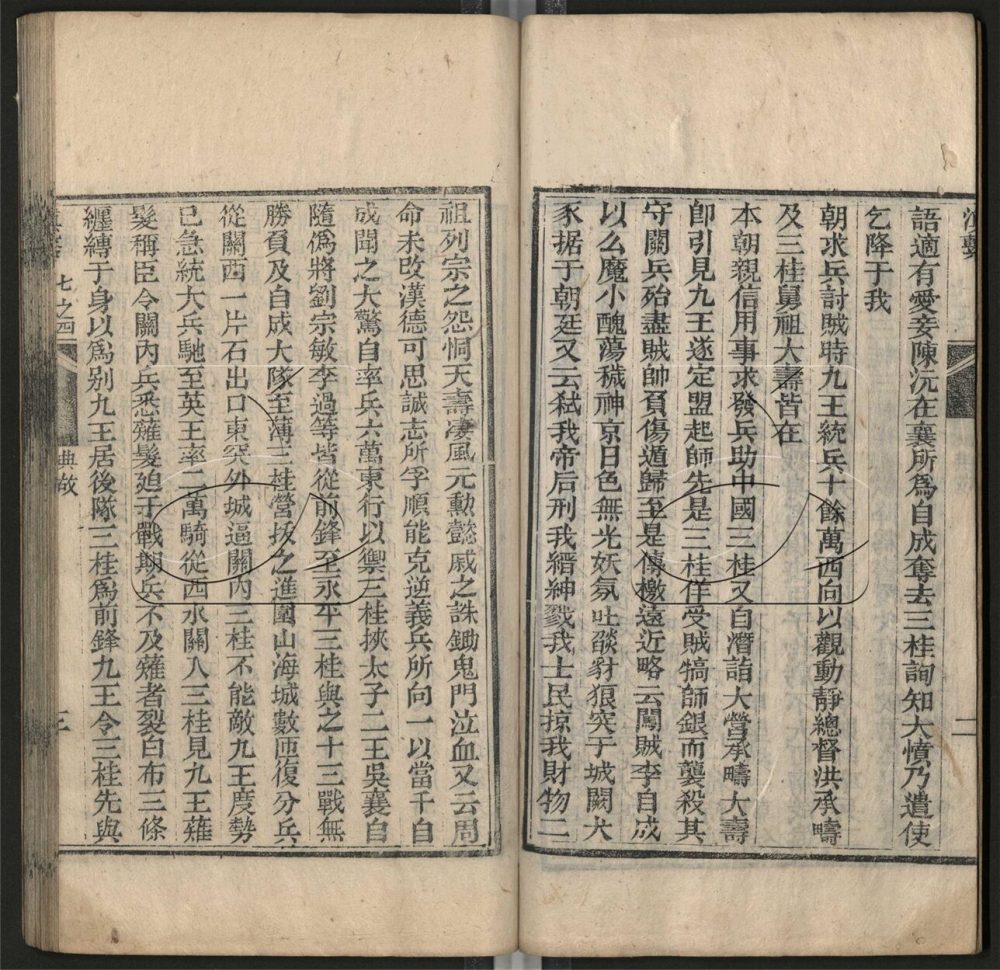 二
語適有愛妾陳沅在襄所爲自成奪去三桂詢知大憤乃遣使
乞降于我
朝求兵討賊時九王統兵十餘萬西向以觀動靜總督洪承疇
及三桂舅祖大壽皆在
本朝親信用事求發兵助中國三桂又自潛詣大營承疇大壽
卽引見九王遂定盟起師先是三桂佯受賊犒師銀而襲殺其
守關兵殆盡賊帥負傷遁歸至是傳檄遠近略云闖賊李自成
以么魔小醜蕩穢神京日色無光妖氛吐燄豺狼突于城闕犬
豕据于朝廷又云弑我帝后刑我縉紳戮我士民掠我財物二
祖列宗之怨恫天壽凄風元勳懿戚之誅鋤鬼門泣血又云周
命未改漢德可思誠志所孚順能克逆義兵所向一以當千自
成聞之大驚自率兵六萬東行以禦三桂挾太子二王吳襄自
隨僞將劉宗敏李過等皆從前鋒至永平三桂與之十三戰無
勝負及自成大隊至薄三桂營拔之進圍山海城數匝復分兵
從關西一片石出口東突外城逼關內三桂不能敵九王度勢
已急統大兵馳至英王率二萬騎從西水關入三桂見九王薙
髮稱臣令關內兵悉薙髮廹于戰期兵不及薙者裂白布三條
纏縳于身以爲别九王居後隊三桂爲前鋒九王令三桂先與
七之四
典故
三